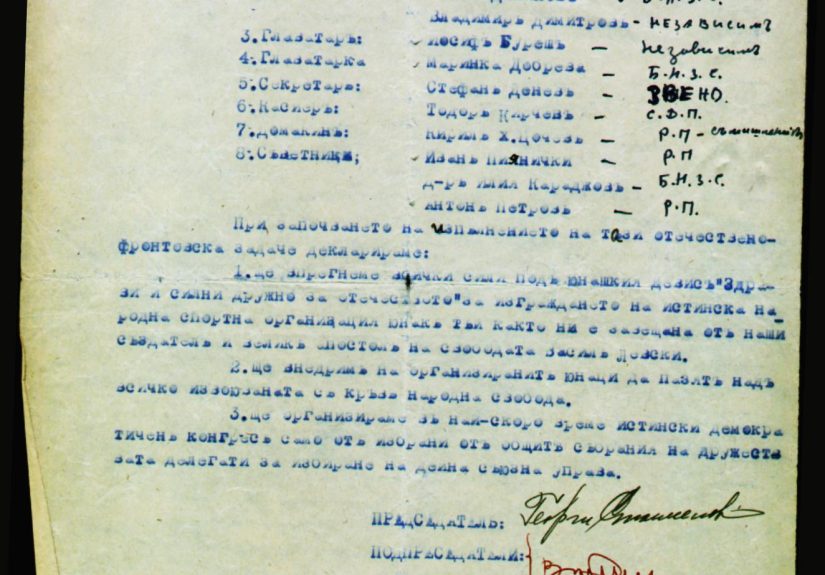 Владимиръ Димитровъ - НЕЗАВИСИМЪ
3. Глазатарь: Йосифъ Бурешъ — Независимъ
4. Глазатарка Маринка Добрева — Б.Н.З.С.
5. Секретарь: Стефанъ Деневъ — ЗВЕНО.
6. Касиеръ: Тодоръ Кирчевъ — С.Д.П.
7. домакинъ: Кирилъ Х.Цочевъ — Р.П -
8. Съветници; Иванъ Пиянички — Р.П
д-ръ Илия Караджовъ — Б.Н.З.С.
Антонъ Петровъ — Р.П.
При започването на изпълнението на тази отечествено-
фронтовска задаче декларираме:
1. ще впрегнеме всички сили подъ юнашкия девизъ"Здра-
ви и силни дружно за отечеството"за изграждането на истинска на_
родна спортна организация юнакъ тъй както ни е завещана отъ наши
създатель и великъ апостолъ на свободата Василъ Левски.
2. ще внедримъ на организиранитъ юнаци да пазятъ надъ
всичко извоюваната съ кръвь народна свобода.
3. ще организираме въ най-скоро време истински демокра
тиченъ конгресъ само отъ избрани отъ общитъ събрания на дружеств
вата делегати за избиране на дейна съюзна управа.
ПРЕДСЕДАТЕЛЬ: Георги
ПОДПРЕСЕДАТЕЛИ: